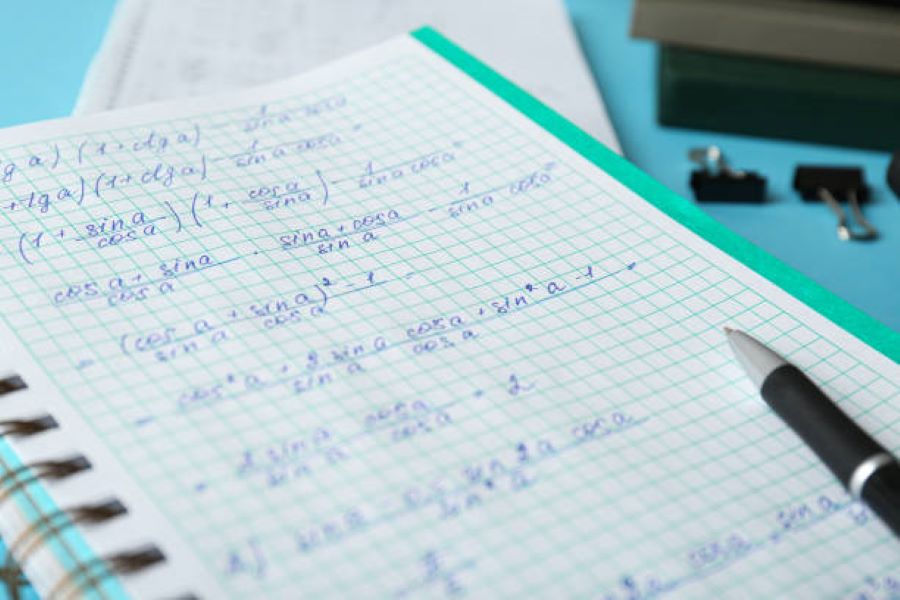 g a) (1 + ctg a) - 1/(sin a cos a)
+ tg a) (1 + ctg a) - 1/(sin a cos a) =
(1 + sin a/cos a) (1 + cos a/sin a) - 1/(sin a cos a) =
(cos a + sin a)/cos a · (sin a + cos a)/sin a - 1/(sin a cos a) =
= ((cos a + sin a)² - 1)/(sin a cos a) =
= (cos² a + 2 sin a cos a + sin² a - 1)/(sin a cos a) =
= (2 sin a cos a)/(sin a cos a) = 2
2) sin a
cos a sin a